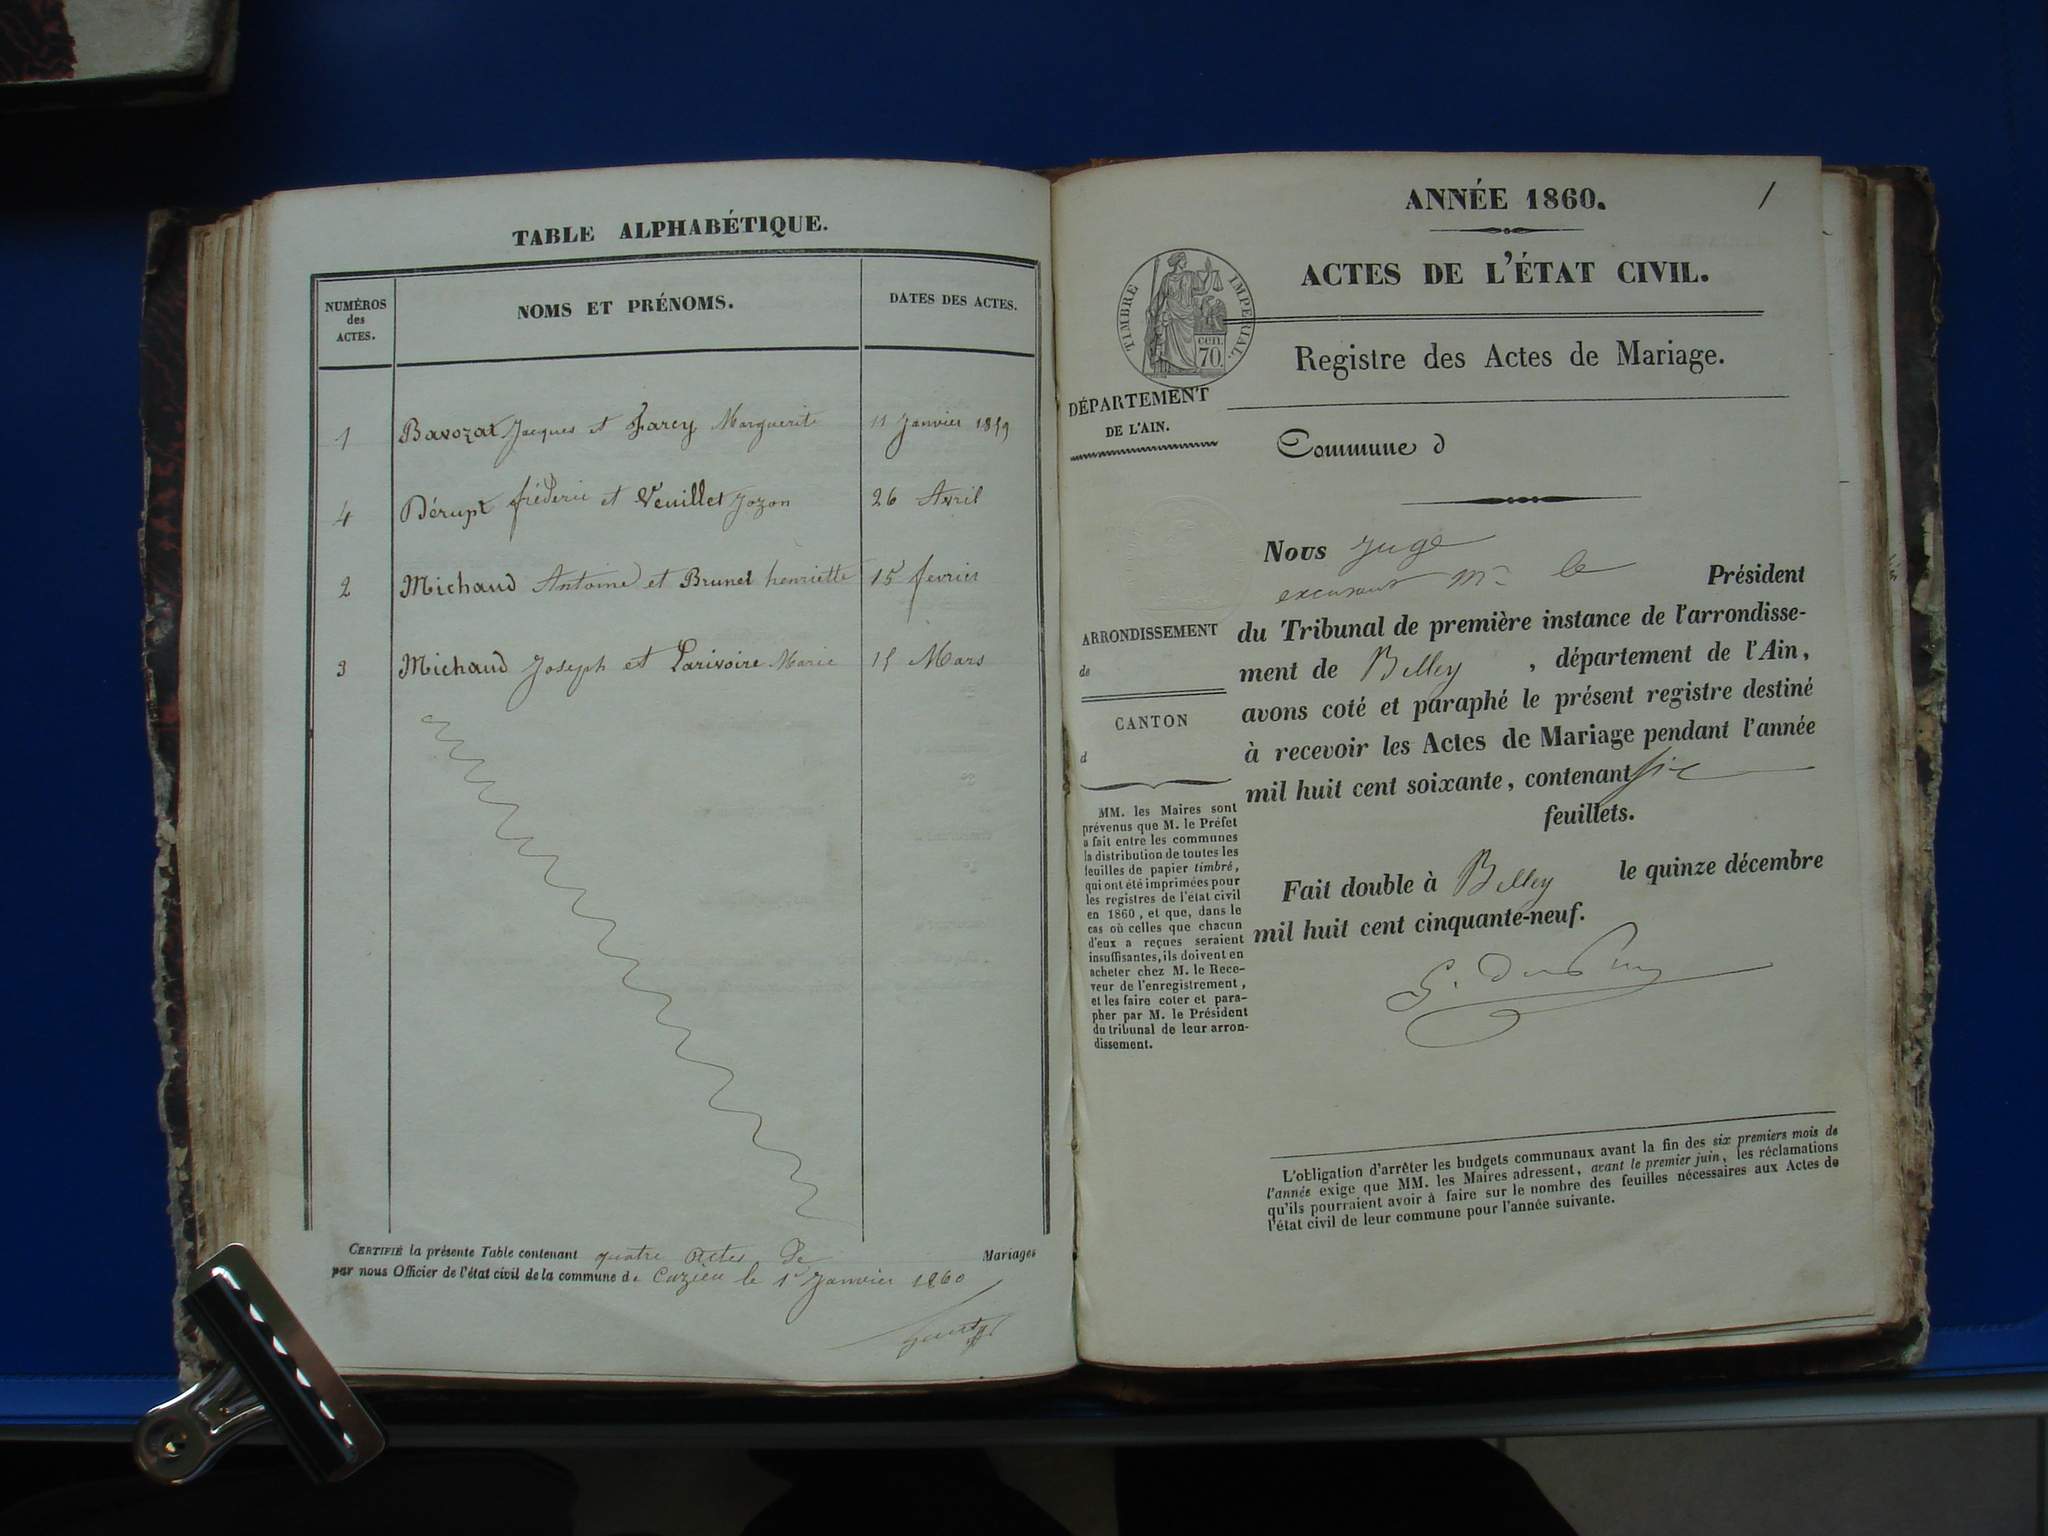 TABLE ALPHABÉTIQUE.
NUMÉROS
des
ACTES.
NOMS ET PRÉNOMS.
DATES DES ACTES.
1 Bavozat Jacques et Farcy Marguerite 11 Janvier 1859
4 Dérupt fréderic et Veuillet Jozon 26 Avril
2 Michaud Antoine et Brunet henriette 15 fevrier
3 Michaud Joseph et Larivoire Marie 15 Mars
CERTIFIÉ la présente Table contenant quatre actes de Mariages
par nous Officier de l'état civil de la commune de Cuzieu le 1er Janvier 1860
ANNÉE 1860.
1
ACTES DE L'ÉTAT CIVIL.
TIMBRE IMPÉRIAL.
cen.
70.
Registre des Actes de Mariage.
DÉPARTEMENT
DE L'AIN.
Commune d
Nous Juge
excusant Mr le Président
du Tribunal de première instance de l'arrondisse-
ment de Belley, département de l'Ain,
avons coté et paraphé le présent registre destiné
à recevoir les Actes de Mariage pendant l'année
mil huit cent soixante, contenant six
feuillets.
Fait double à Belley le quinze décembre
mil huit cent cinquante-neuf.
ARRONDISSEMENT
de
CANTON
d
MM. les Maires sont
prévenus que M. le Préfet
a fait entre les communes
la distribution de toutes les
feuilles de papier timbré,
qui ont été imprimées pour
les registres de l'état civil
en 1860, et que, dans le
cas où celles que chacun
d'eux a reçues seraient
insuffisantes, ils doivent en
acheter chez M. le Rece-
veur de l'enregistrement,
et les faire coter et para-
pher par M. le Président
du tribunal de leur arron-
dissement.
L'obligation d'arrêter les budgets communaux avant la fin des six premiers mois de
l'année exige que MM. les Maires adressent, avant le premier juin, les réclamations
qu'ils pourraient avoir à faire sur le nombre des feuilles nécessaires aux Actes de
l'état civil de leur commune pour l'année suivante.